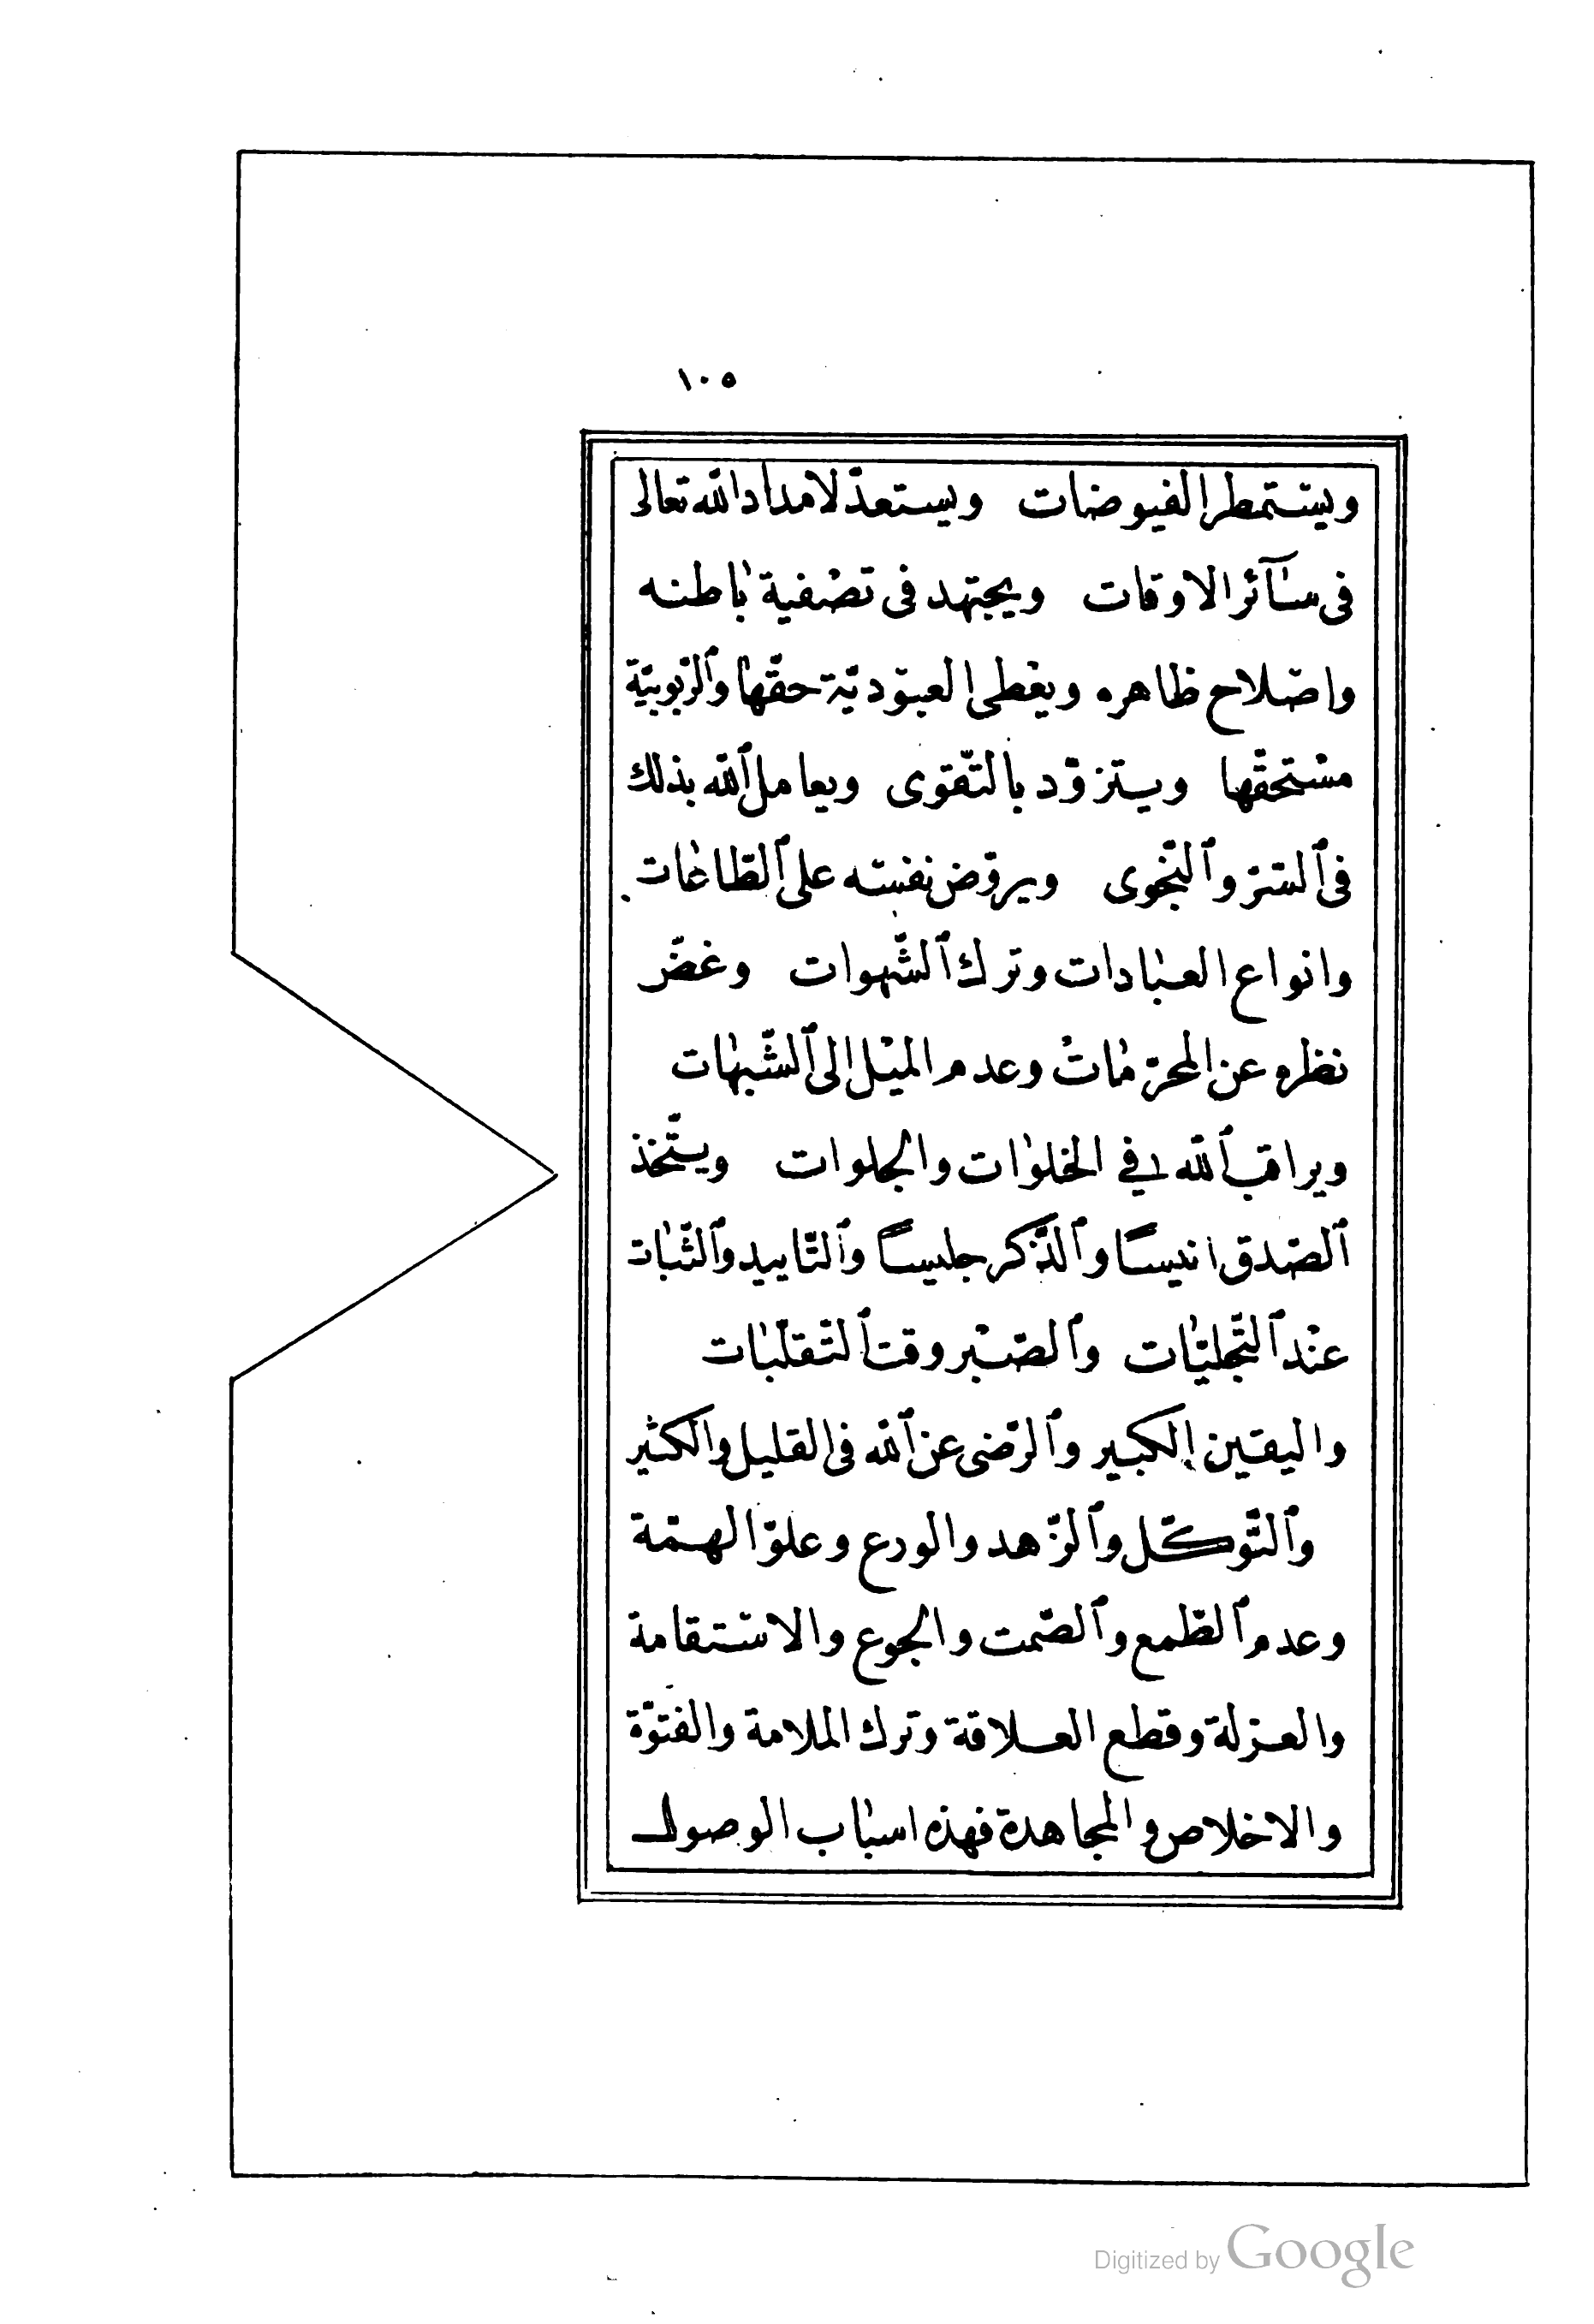 ١٠٥
ويستمطر الفيوضات ويستعدّ لامداد الله تعالى
فى سآئر الاوقات ويجتهد فى تصفية باطنه
واصلاح ظاهره ويعطى العبوديّة حقّها وٱلرّبوبيّة
مستحقّها ويستزوّد بالتّقوى ويعامل ٱلله بذلك
فى ٱلسّرّ وٱلنّجوى ويروّض نفسه على ٱلطّاعات
وانواع العبادات وترك ٱلشّهوات وغضّ
نظره عن المحرّمات وعدم الميل الى ٱلشّبهات
ويراقب ٱلله في الخلوات والجلوات ويتّخذ
ٱلصّدق انيسًا وٱلذّكر جليسًا وٱلتّاييد وٱلثّبات
عند ٱلتّجليّات وٱلصّبر وقت ٱلتّقلّبات
واليقين الكبير وٱلرّضى عن ٱلله فى القليل والكثير
وٱلتّوكّل وٱلزّهد والورع وعلوّ الهمّة
وعدم ٱلطّمع وٱلصّمت والجوع والاستقامة
والعزلة وقطع العلاقة وترك الملامة والفتوّة
والاخلاص والمجاهدة فهذه اسباب الوصول
Digitized by Google